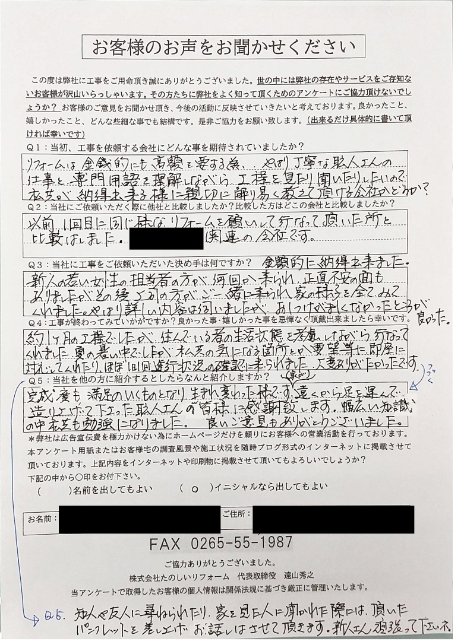 お客様のお声をお聞かせください
この度は弊社に工事をご用命頂き誠にありがとうございました。世の中には弊社の存在やサービスをご存知ない
お客様が沢山いらっしゃいます。その方たちに弊社をよく知って頂くためのアンケートにご協力頂けないで
しょうか？ お客様のご意見をお聞かせ頂き、今後の活動に反映させていきたいと考えております。良かったこと、
嬉しかったこと、どんな些細な事でも結構です。是非ご協力をお願い致します。（出来るだけ具体的に書いて頂
ければ幸いです）
Q1：当初、工事を依頼する会社にどんな事を期待されていましたか？
リフォームは金銭的にも高額を要する為、やはり丁寧な職人さんの
仕事と、専門用語を理解しながら、工程を見たり聞いたりしたいので
私共が納得出来る様に親切に解り易く教えて頂ける会社かどうか？
Q2：当社にご依頼いただく際に他社と比較しましたか？比較した方はどこの会社と比較しましたか？
以前、1回目に同じ様なリフォームを願いして行なって頂いた所と
比較しました。 関連の会社です。
Q3：当社に工事をご依頼いただいた決め手は何ですか？ 金額的に納得出来ました。
新人の若い女性の担当者の方が、何回か来られ、正直不安の面も
ありましたが、その後、上司の方がご一緒に来られ、家の様子を全てみて
くれました。やはり詳しい内容は伺いましたが、押しつけがましくなかったところが
良かった。
Q4：工事が終わってみていかがですか？良かった事・嬉しかった事を忌憚なく頂戴出来ましたら幸いです。
約1ヶ月の工程でしたが、住んでいる者の生活状態を考慮しながら行なって
くれました。夏の暑い中でしたが、私共の気になる箇所とか要望等に即座に
対応してくれたり、ほぼ1回進行状況の確認に来られました。大変ありがたかったです。
Q5：当社を他の方に紹介するとしたらなんと紹介しますか？
完成度も満足のいくものとなり、生まれ変わった様です。遠くから足を運んで
造り上げて下さった職人さんの皆様に感謝致します。幅広い知識
の中、私も勉強になりました。良いご意見もありがとうございました。
＊弊社は広告宣伝費を極力かけない為にホームページだけを頼りにお客様への営業活動を行っております。
本アンケート用紙またはお客様宅の調査風景や施工状況を随時ブログ形式のインターネットに掲載させて
頂いております。上記内容をインターネットや印刷物に掲載させて頂いてもよろしいでしょうか？
下記の中から〇印をお付下さい。
（ ）名前を出してもよい （ ○ ）イニシャルなら出してもよい
お名前： ご住所：
FAX 0265-55-1987
ご協力ありがとうございました。
株式会社たのしいリフォーム 代表取締役 遠山秀之
当アンケートで取得したお客様の個人情報は関係法規に基づき厳正に管理いたします。
Q5. 知人や友人に尋ねられたり、家を見た人に聞かれた際には、頂いた
パンフレットを差し上げ、お話しはさせて頂きます。新人さん頑張って下さい。